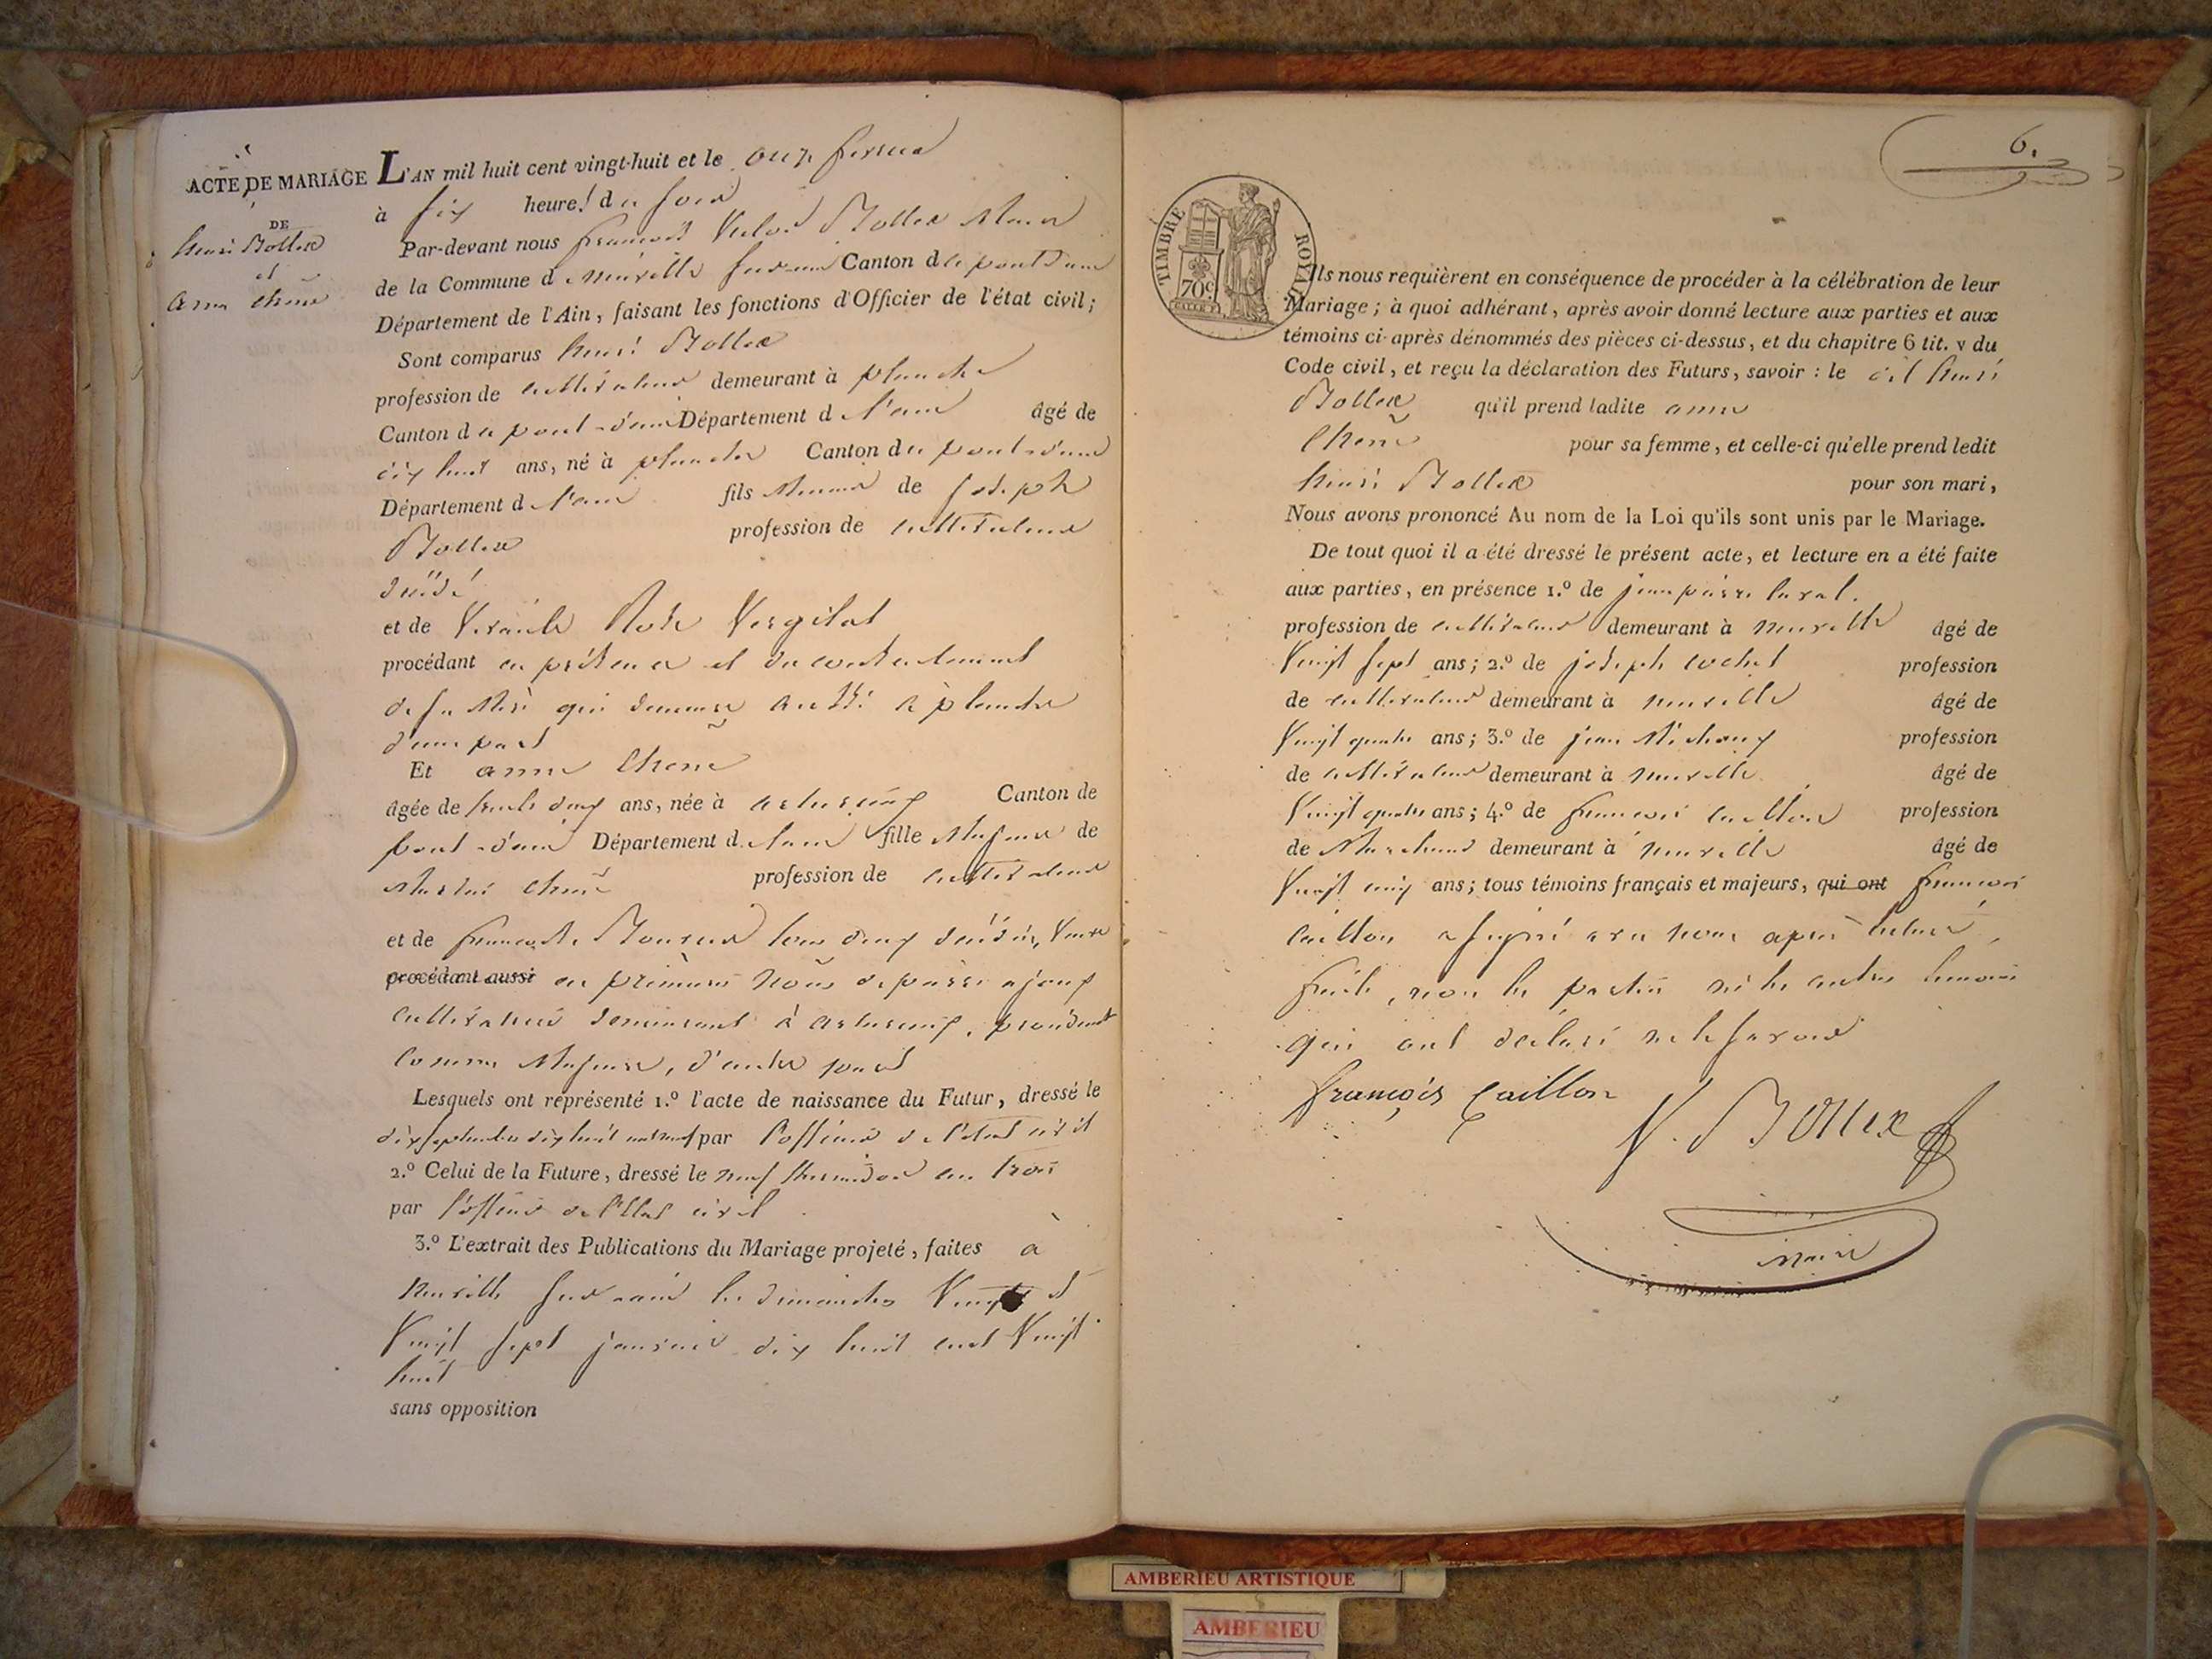 ACTE DE MARIAGE
DE
henri Bollex
et
anne chêne
L'AN mil huit cent vingt-huit et le onze fevrier
à six heures du soir
Par-devant nous françois Victor Bollex Maire
de la Commune de neuville sur ain Canton de pont d'ain
Département de l'Ain, faisant les fonctions d'Officier de l'état civil;
Sont comparus henri Bollex
profession de cultivateur demeurant à planche
Canton de pont-d'ain Département de l'ain âgé de
dix huit ans, né à planche Canton de pont-d'ain
Département de l'ain fils Mineur de joseph
Bollex profession de cultivateur
décédé
et de Rose
procédant en présence et du consentement
de sa Mère qui demeure aussi à planche
d'une part
Et anne Chene
âgée de trente deux ans, née à Canton de
pont-d'ain Département de l'ain fille Majeure de
Martin chene profession de cultivateur
et de françoise tous deux décédés, Veuve
procédant aussi en premiere Noce de pierre
cultivateur demeurant à procédant
comme Majeure, d'autre part
Lesquels ont représenté 1.º l'acte de naissance du Futur, dressé le
dix septembre dix huit cent neuf par l'officier de l'état civil
2.º Celui de la Future, dressé le neuf thermidor an trois
par l'officier de l'état civil
3.º L'extrait des Publications du Mariage projeté, faites à
Neuville sur ain les dimanches Vingt et
Vingt sept janvier dix huit cent Vingt
huit
sans opposition
6.
TIMBRE ROYAL
70c
Ils nous requièrent en conséquence de procéder à la célébration de leur
Mariage; à quoi adhérant, après avoir donné lecture aux parties et aux
témoins ci-après dénommés des pièces ci-dessus, et du chapitre 6 tit. v du
Code civil, et reçu la déclaration des Futurs, savoir: le dit henri
Bollex qu'il prend ladite anne
Chene pour sa femme, et celle-ci qu'elle prend ledit
henri Bollex pour son mari,
Nous avons prononcé Au nom de la Loi qu'ils sont unis par le Mariage.
De tout quoi il a été dressé le présent acte, et lecture en a été faite
aux parties, en présence 1.º de jean pierre laval.
profession de cultivateur demeurant à neuville âgé de
Vingt sept ans; 2.º de joseph cochet profession
de cultivateur demeurant à neuville âgé de
Vingt quatre ans; 3.º de jean Michoux profession
de cultivateur demeurant à neuville âgé de
Vingt quatre ans; 4.º de francois caillon profession
de Marchand demeurant à neuville âgé de
Vingt cinq ans; tous témoins français et majeurs, qui ont francois
Caillon a signé avec nous après lecture
faite, non les parties ni les autres temoins
qui ont déclaré ne le savoir
françois Caillon
V. Bollex
Maire
AMBERIEU ARTISTIQUE
AMBERIEU